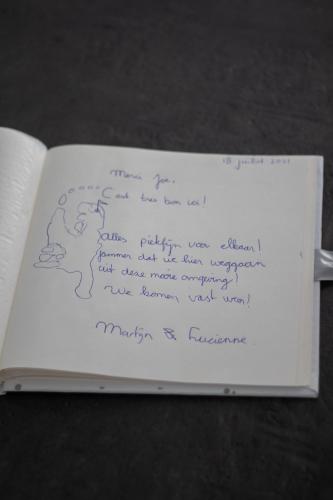 18 juillet 2021
Merci Joe,
C'est tres bon ici!
Alles piekfijn voor elkaar!
Jammer dat we hier weggaan
uit deze mooie omgeving!
We komen vast weer!
Martijn & Lucienne